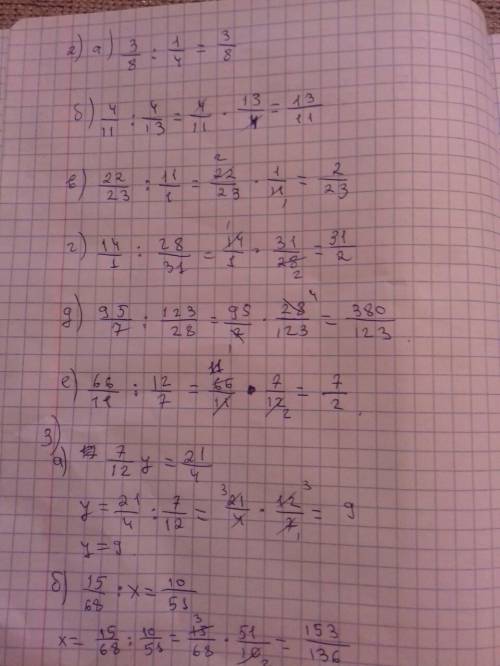 2) а) 3/8 : 1/4 = 3/8
б) 4/11 : 4/13 = 4/11 · 13/4 = 13/11
в) 22/23 : 11/1 = 22/23 2 · 1/11 1 = 2/23
г) 14/1 : 28/31 = 14/1 1 · 31/28 2 = 31/2
д) 95/7 : 123/28 = 95/7 1 · 28/123 4 = 380/123
е) 66/11 : 12/7 = 66/11 · 7/12 2 = 7/2
3)
а) 7/12 y = 21/4
y = 21/4 : 7/12 = 21/4 3 · 12/7 3 1 = 9
y = 9
б) 15/68 : x = 10/51
x = 15/68 : 10/51 = 15/68 3 · 51/10 2 = 153/136